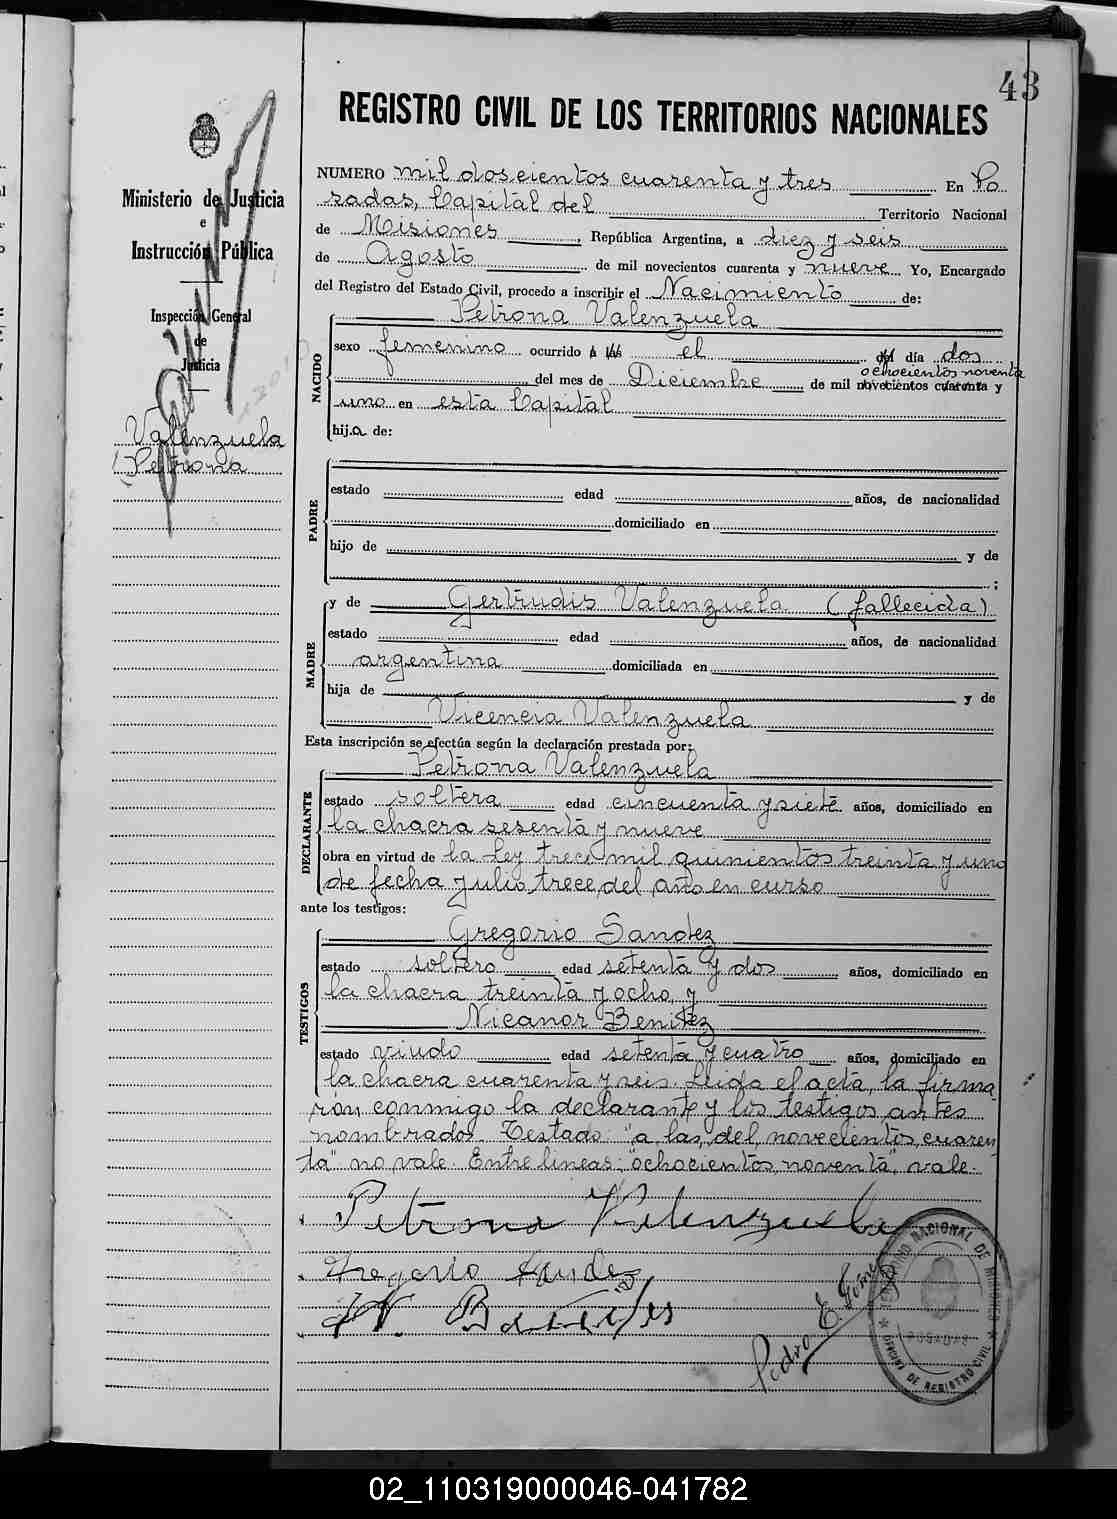 43
REGISTRO CIVIL DE LOS TERRITORIOS NACIONALES
Ministerio de Justicia
e
Instrucción Pública
Inspección General
de
Justicia
Valenzuela
Petrona
NUMERO mil doscientos cuarenta y tres En Po
sadas, Capital del Territorio Nacional
de Misiones, República Argentina, a diez y seis
de Agosto de mil novecientos cuarenta y nueve Yo, Encargado
del Registro del Estado Civil, procedo a inscribir el Nacimiento de:
NACIDO
Petrona Valenzuela
sexo femenino ocurrido a las el del día dos
ochocientos noventa
del mes de Diciembre de mil novecientos cuarenta y
uno en esta Capital
hija de:
PADRE
estado edad años, de nacionalidad
domiciliado en
hijo de y de
;
MADRE
y de Gertrudis Valenzuela (fallecida)
estado edad años, de nacionalidad
argentina domiciliada en
hija de y de
Vicencia Valenzuela
Esta inscripción se efectúa según la declaración prestada por:
DECLARANTE
Petrona Valenzuela
estado soltera edad cincuenta y siete años, domiciliado en
la chacra sesenta y nueve
obra en virtud de la Ley trece mil quinientos treinta y uno
de fecha julio trece del año en curso
ante los testigos:
TESTIGOS
Gregorio Sandez
estado soltero edad setenta y dos años, domiciliado en
la chacra treinta y ocho, y
Nicanor Benitez
estado viudo edad setenta y cuatro años, domiciliado en
la chacra cuarenta y seis. Leida el acta, la firma
rón conmigo la declarante y los testigos antes
nombrados. Testado: "a las, del, novecientos, cuaren
ta" no vale. Entre lineas: "ochocientos noventa", vale.
Petrona Valenzuela
Gregorio Sandez
Pedro E. Gómez
TERRITORIO NACIONAL DE MISIONES
POSADAS
OFICINA DE REGISTRO CIVIL
02_110319000046-041782